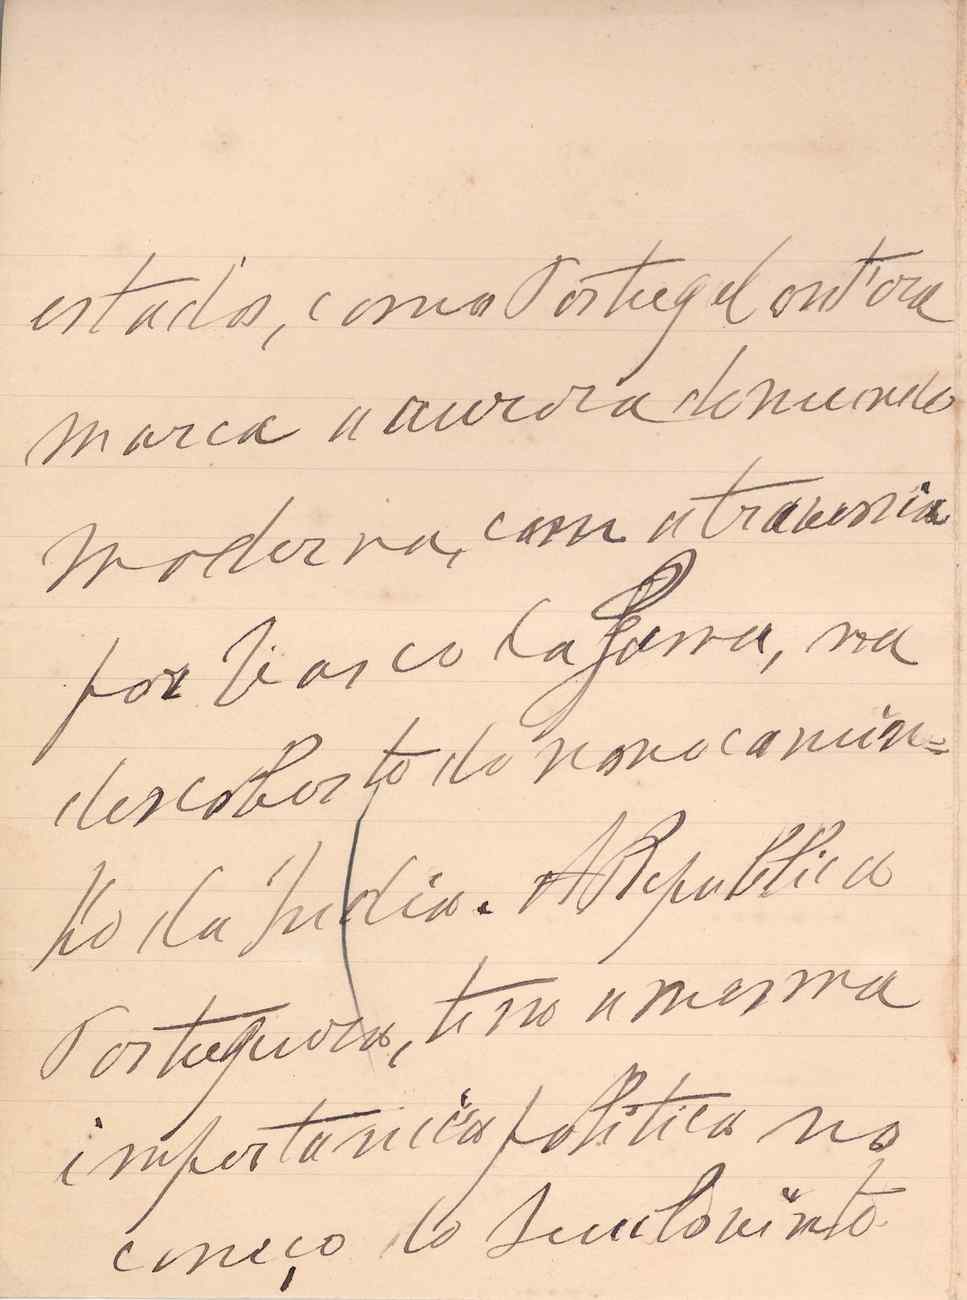 estados, como Portugal out'ora
marca a aurora do mundo
moderna, com a travessia
por Vasco da Gama, na
descoberta do novo camin=
ho da India. A Republica
Portugueza, tem a mesma
importancia politica no
começo do seculo vinte